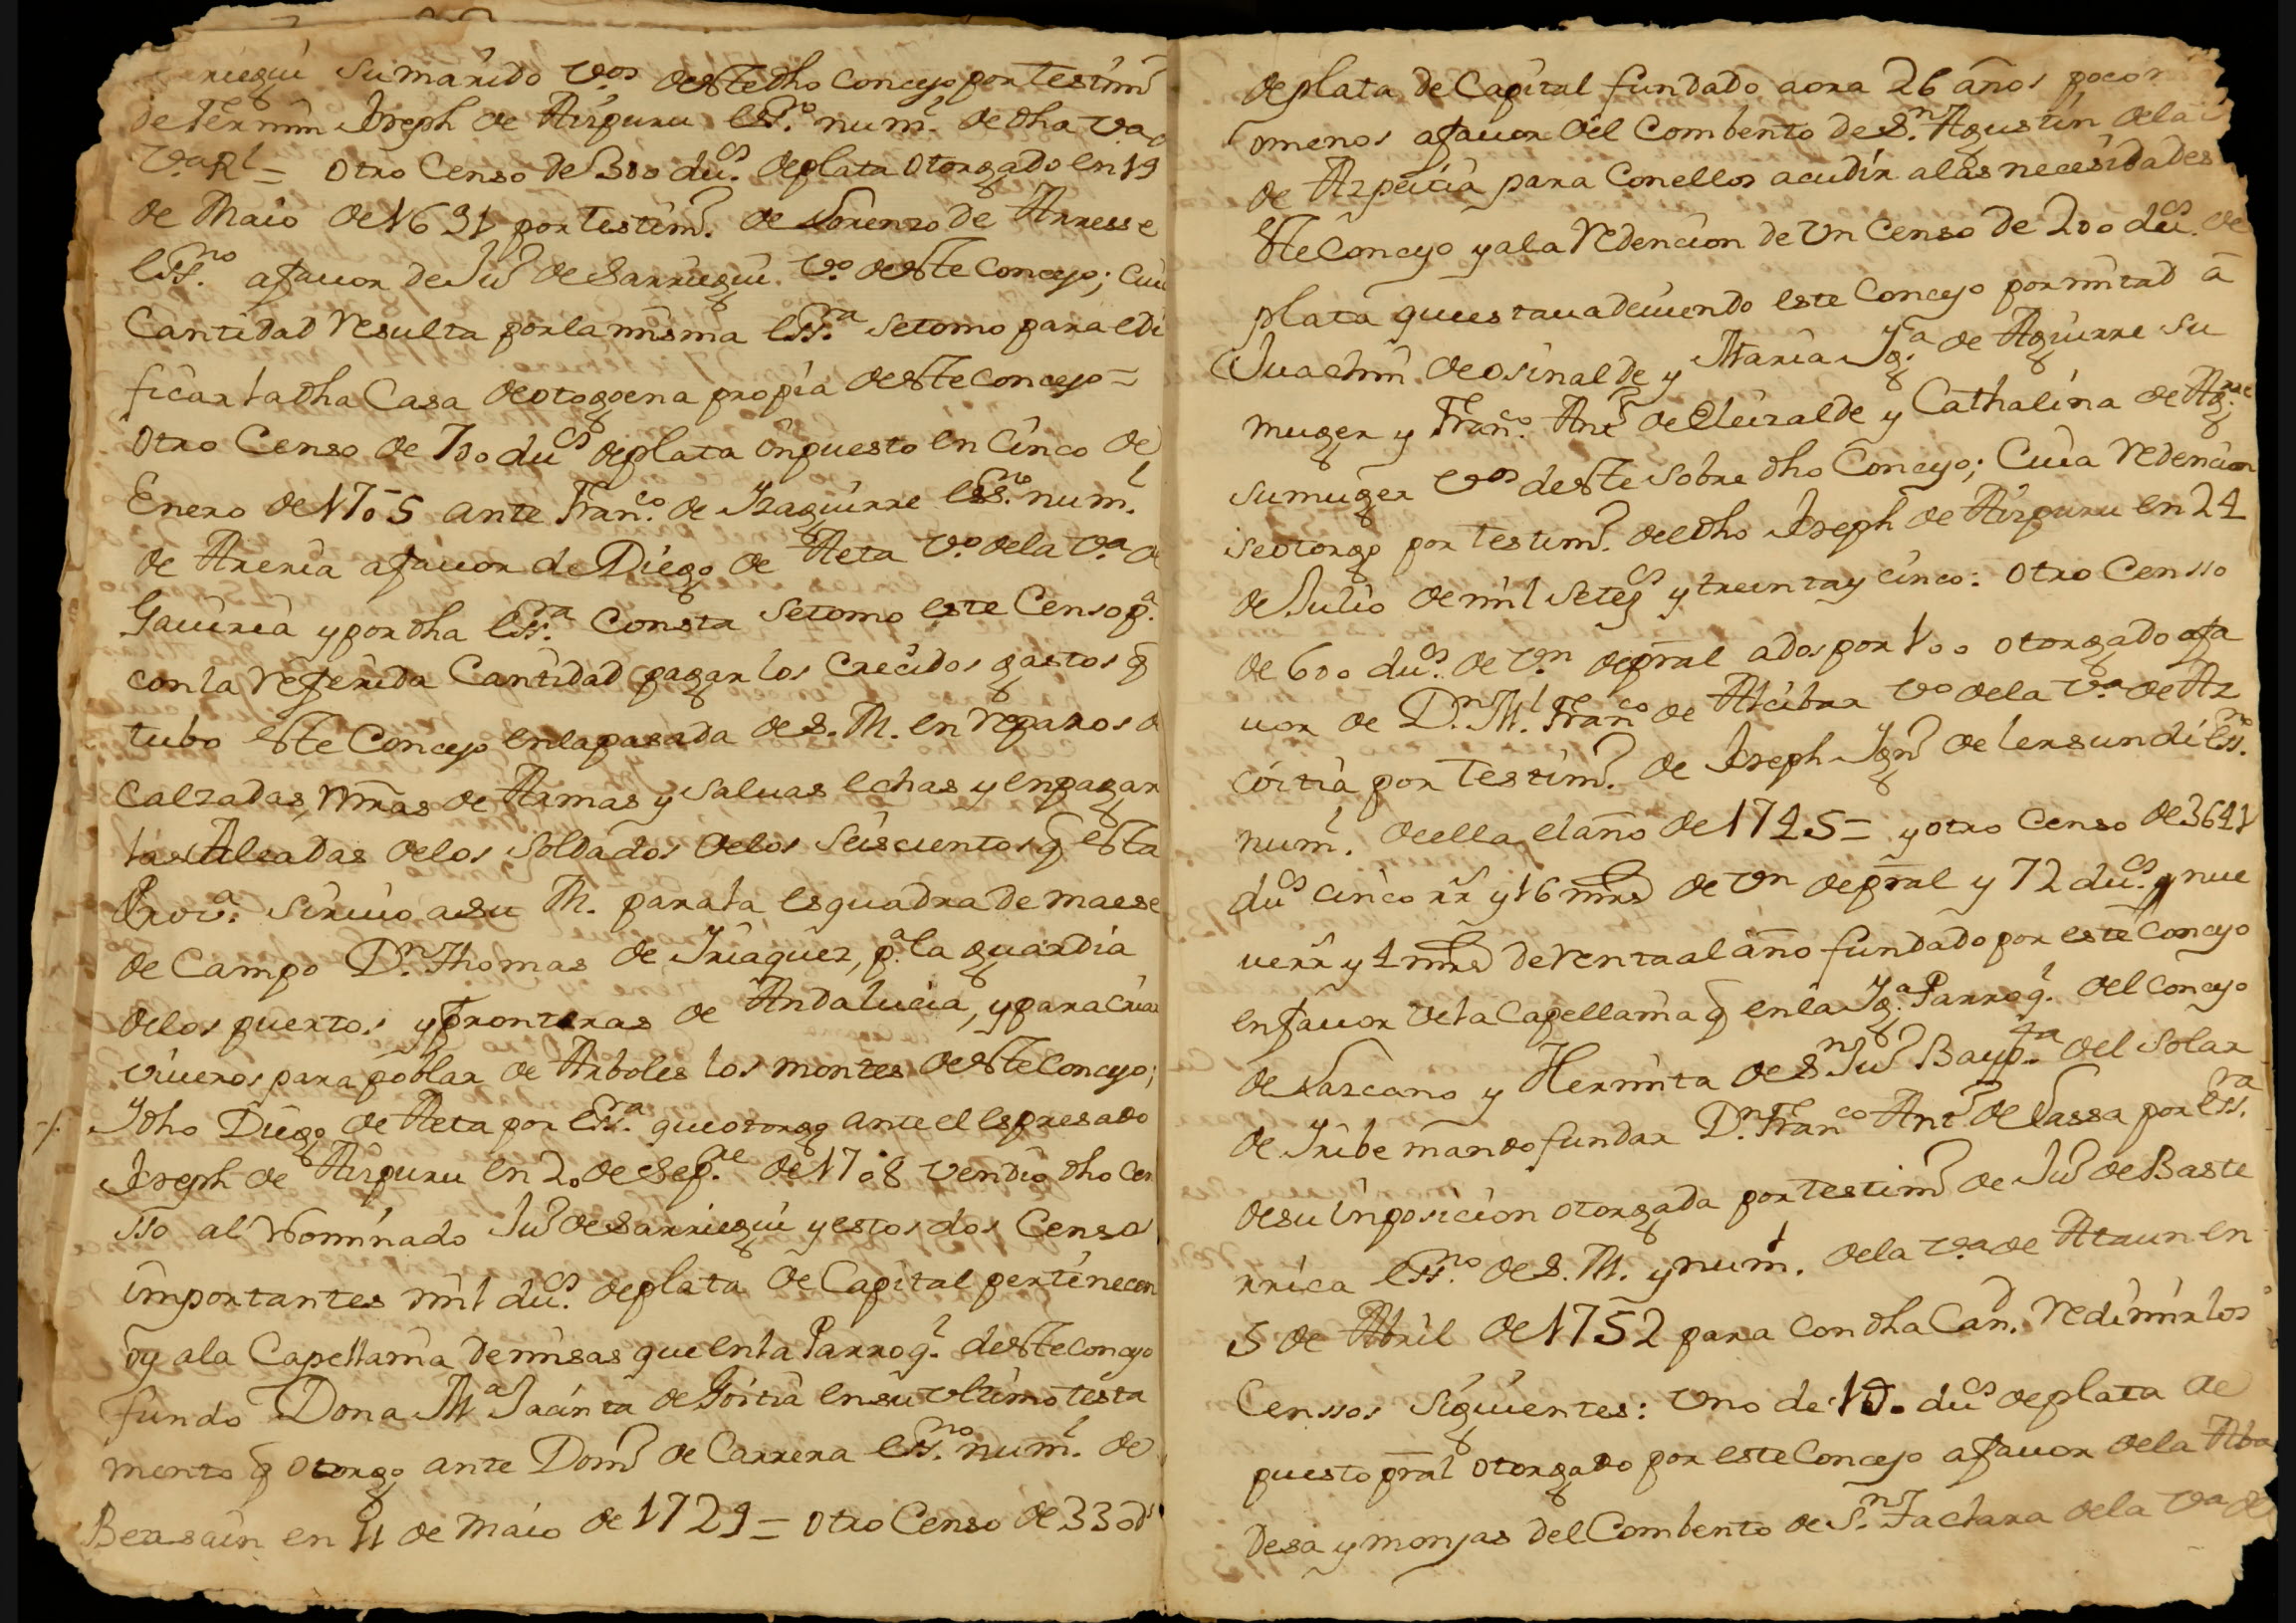 rriegui su marido v.os deste dho concejo por testim.o
de Fermin Joseph de Aizpuru ess.no num.l de dha v.a
V.a Rl = otro Censo de 300 du.s de plata otorgado en 19
de Maio de 1691 por testim.o de Lorenzo de Arresse
ess.no a favor de Ju.o de Sarriegui v.o deste concejo; cuia
Cantidad resulta por la misma ess.ra se tomo para edi
ficar la dha Casa de otoggoena propia deste concejo =
otro Censo de 700 du.s de plata inpuesto en cinco de
Enero de 1705 ante Fran.co de Yzaguirre ess.no num.l
de Areria a favor de Diego de Aeta v.o de la v.a de
Gaviria y por dha ess.ra Consta se tomo este Censo p.a
con la referida Cantidad pagar los crecidos gastos q
tubo este Concejo en la pasada de S. M. en reparos de
Calzadas, rm̃as de Armas y salvas echas y en pagar
las Aleadas de los soldados de los seiscientos q esta
Prov.a sirvio a su M. para la esquadra de maese
de Campo D.n Thomas de Yriaquez, p.a la guardia
de los puertos y fronteras de Andalucia, y para criar
viveros para poblar de Arboles los montes deste Concejo;
Y dho Diego de Aeta por ess.ra que otorgo ante el espresado
Joseph de Aizpuru en 20 de Sep.re de 1708 vendio dho Cen
sso al Nominado Ju.o de Sarriegui y estos dos Censos
importantes mil du.s de plata de Capital pertenecen
oy a la Capellania de misas que en la Parroq.l deste concejo
fundo Dona M.a Jacinta de Goitia en su ultimo testa
mento q otorgo ante Dom.o de Carrera ess.no num.l de
Beasain en 11 de Maio de 1729 = otro Censo de 330 ds
de plata de Capital fundado aora 26 años poco
omenos a favor del Combento de S.n Agustin de la
de Azpeitia para con ellos acudir a las necesidades
este Concejo y a la redencion de un Censo de 200 du.s de
plata que estava deviendo este Concejo por mitad a
Juachin de osinalde y Maria Ig.a de Aguirre su
muger y Fran.co Ant.o de Eleizalde y Cathalina de Ag.rre
su muger v.os deste sobre dho Concejo; Cuia redencion
se otorgo por testim.o del dho Joseph de Aizpuru en 24
de Julio de mil setez.s y treinta y cinco: otro Censso
de 600 du.s de v.n de pral a dos por 100 otorgado a fa
vor de D.n M.l Fran.co de Alcibar v.o de la v.a de Az
coitia por testim.o de Joseph Ign.o de Lersundi ess.no
num.l de ella el año de 1745 = y otro Censo de 3641
du.s cinco rr.s y 16 mrs de v.n de pral y 72 du.s y nue
ve rr.s y 4 mrs de renta al año fundado por este Concejo
en favor de la Capellania q en la Ig.a Parroq.l del concejo
de Lazcano y Hermita de S.n Ju.o Bap.ta del Solar
de Yribe mando fundar D.n Fran.co Ant.o de Lassa por ess.ra
de su inposicion otorgada por testim.o de Ju.o de Baste
rrica ess.no de S. M. y num.l de la v.a de Ataun en
5 de Abril de 1752 para con dha Can.d redimir los
Censsos siguientes: Uno de du.s de plata de
puesto pral otorgado por este Concejo a favor de la Aba
desa y monjas del Combento de S.n de la v.a de